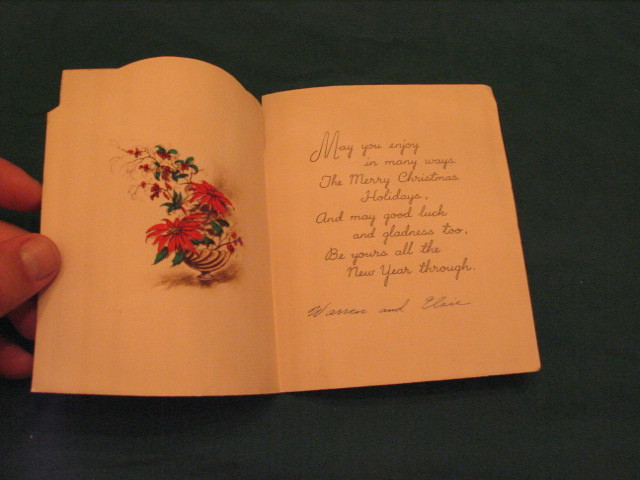 May you enjoy
in many ways
The Merry Christmas
Holidays,
And may good luck
and gladness too,
Be yours all the
New Year through.
Warren and Elsie